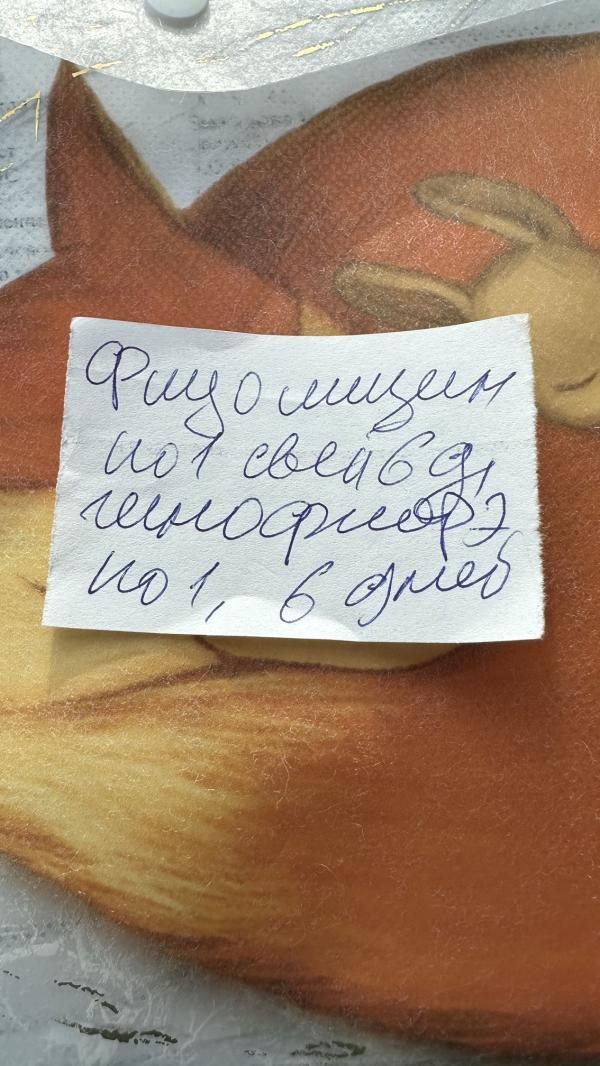 Фицомицин
по 1 свеч 6 д,
гинофлорЭ
по 1, 6 дней